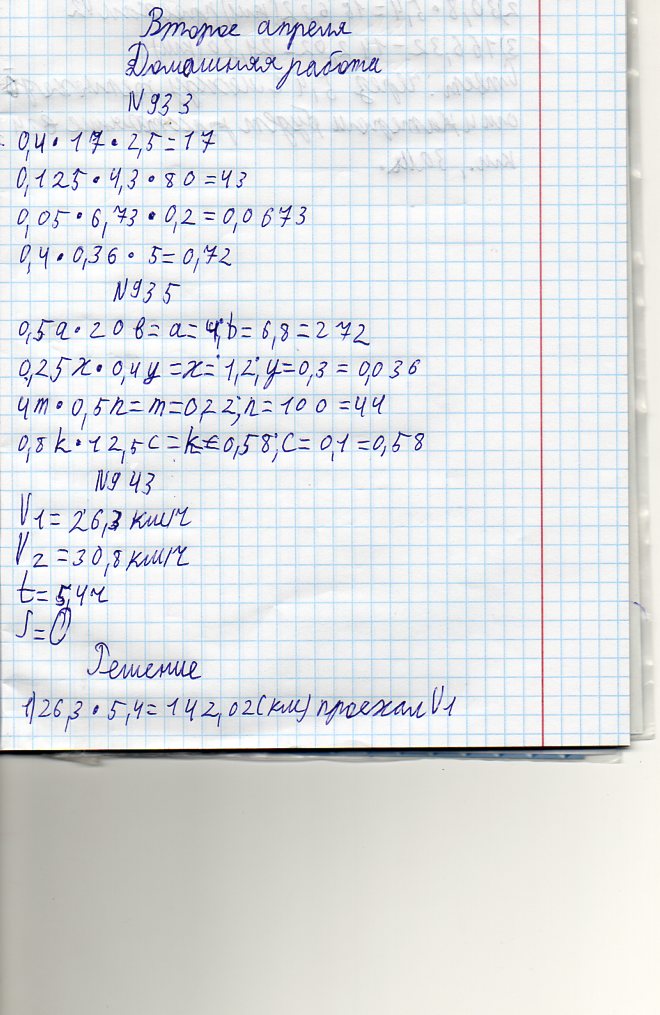 Второе апреля
Домашняя работа
№933
0,4 • 17 • 2,5 = 17
0,125 • 4,3 • 80 = 43
0,05 • 6,73 • 0,2 = 0,0673
0,4 • 0,36 • 5 = 0,72
№935
0,5a • 20 в = a = 4; b = 6,8 = 272
0,25x • 0,4y = x = 1,2; y = 0,3 = 0,036
4m • 0,5n = m = 0,22; n = 100 = 44
0,8k • 12,5c = k = 0,58; c = 0,1 = 0,58
№943
V1 = 26,3 км/ч
V2 = 30,8 км/ч
t = 5,4ч
S =
Решение
1) 26,3 • 5,4 = 142,02 (км) проехал V1